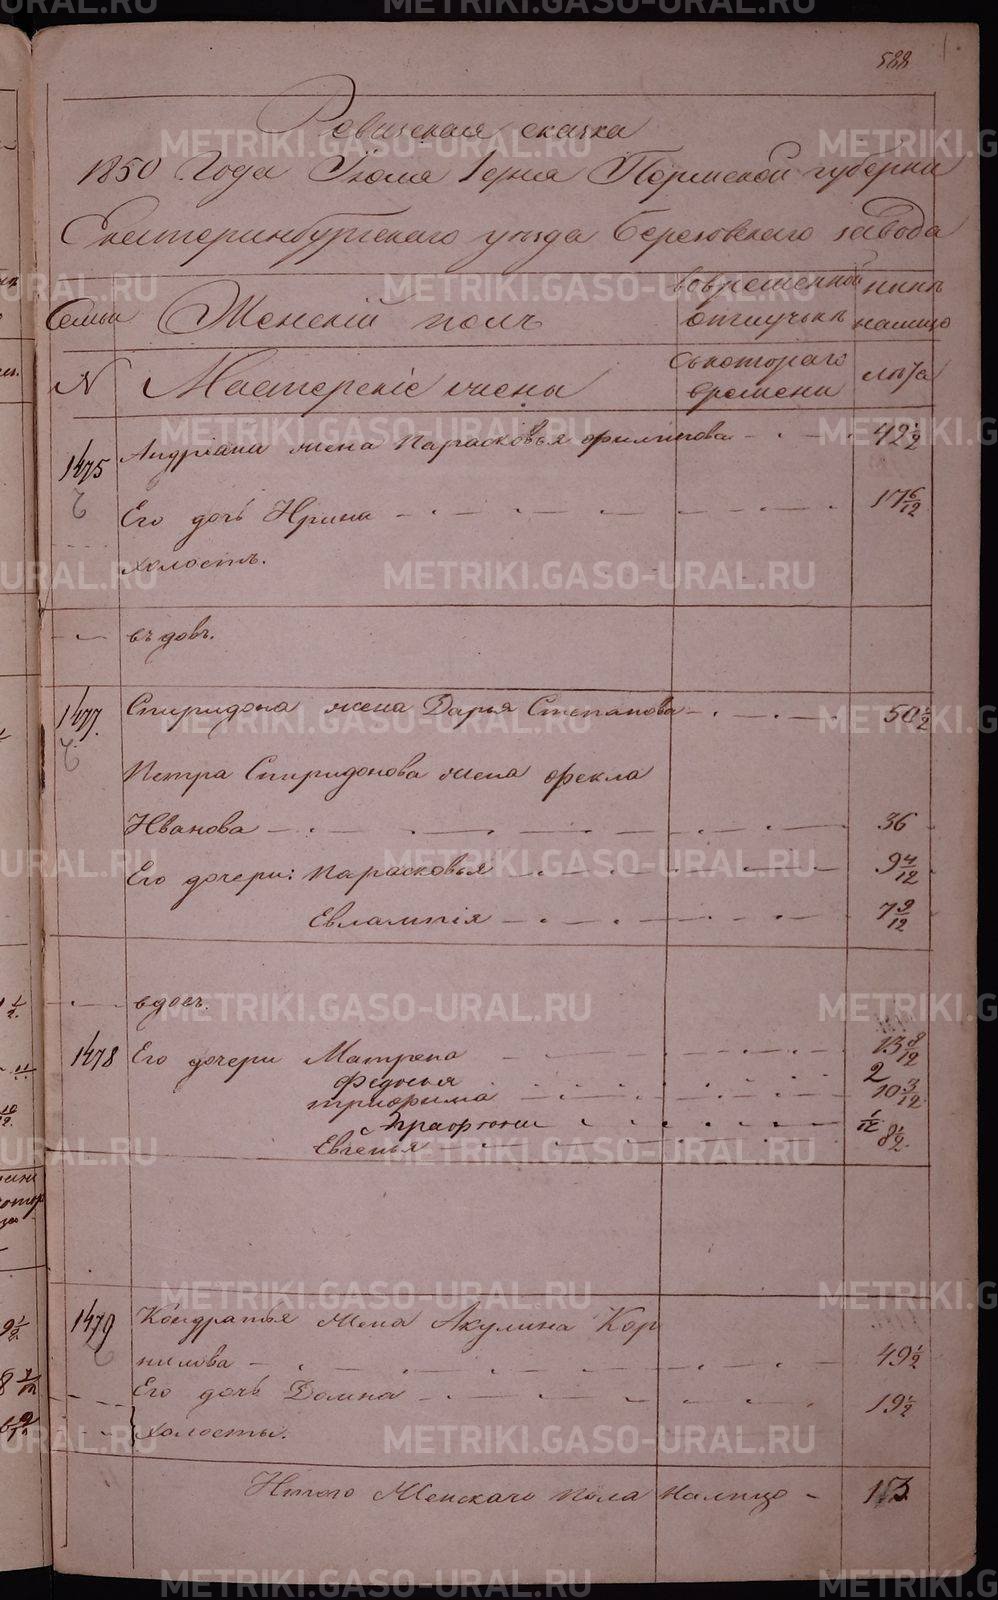 588
Ревизская скачка
1850 Года Июля 1 дня Пермской губерни
Екатеринбургскаго уѣзда Березовскаго завода
Семьи Женскій полъ вовременной отлучькѣ нынѣ налицо
N Мастерскіе жены съкотораго времени лѣта
1475 Андріана жена Парасковья Филипова 42 1/2
Его дочь Ирина 17 6/12
холостъ.
въ довъ.
1477 Спиридона жена Дарья Степанова 50 1/2
Петра Спиридонова жена Фекла
Иванова 36
Его дочери: Парасковья 9 4/12
Евлампія 7 9/12
вдовъ.
1478 Его дочери Матрена 13 8/12
Федосья 2
Трифима 10 3/12
1/12
Евгенья 8 1/2
1479 Кондратья жена Акулина Кор
нилова 49 1/2
Его дочь Домна 19 1/2
холосты.
Итого Женскаго пола налицо - 13
METRIKI.GASO-URAL.RU